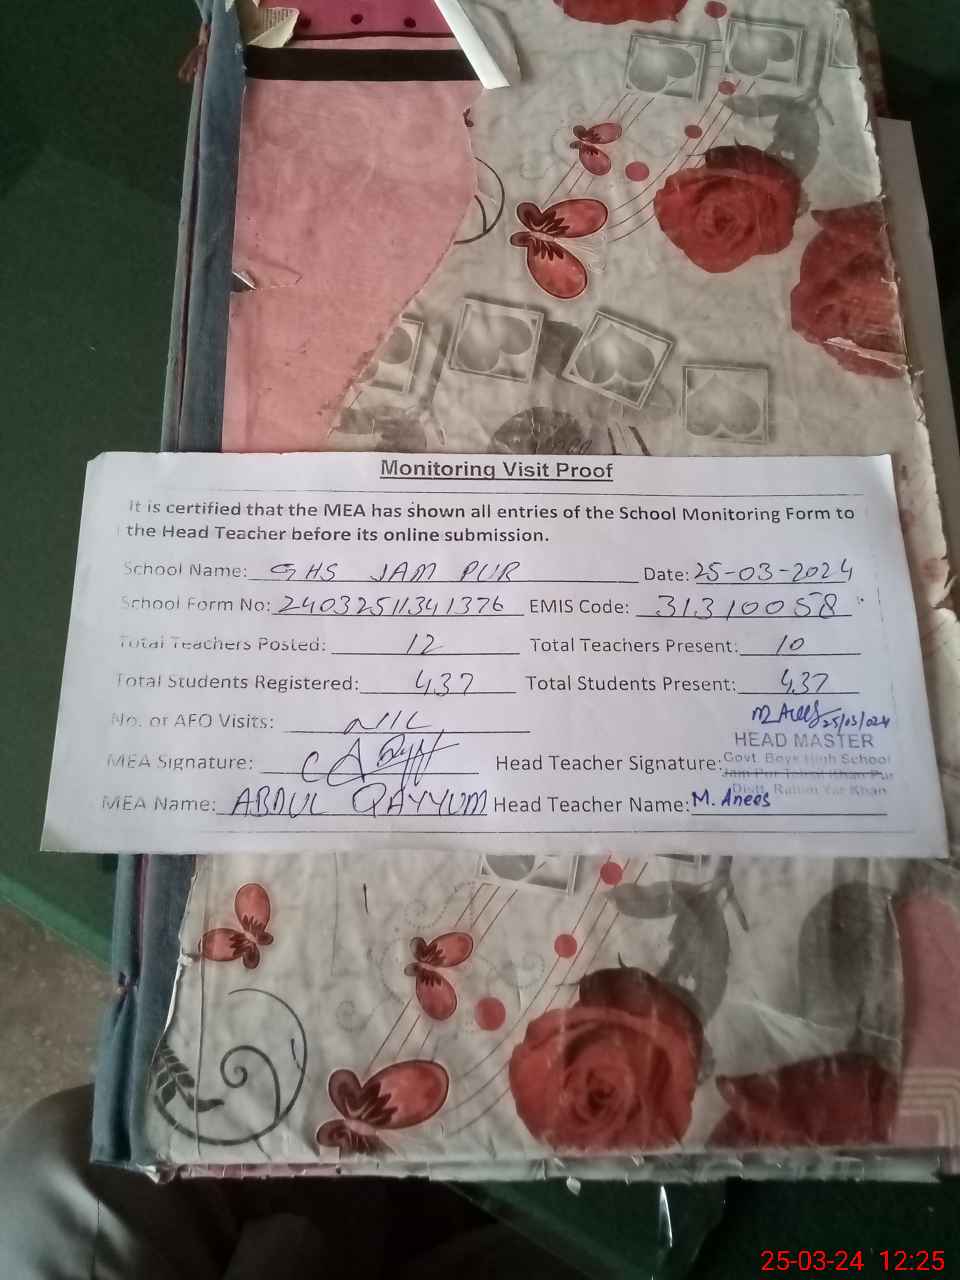 Monitoring Visit Proof
It is certified that the MEA has shown all entries of the School Monitoring Form to
the Head Teacher before its online submission.
School Name: GHS JAM PUR Date: 25-03-2024
School Form No: 24032511341376 EMIS Code: 31310058
Total Teachers Posted: 12 Total Teachers Present: 10
Total Students Registered: 437 Total Students Present: 437
No. or AEO Visits: NIL
M Anees 25/03/024
HEAD MASTER
MEA Signature: Head Teacher Signature: Govt. Boys High School
Jam Pur Tehsil Khan Pur
Distt. Rahim Yar Khan
MEA Name: ABDUL QAYYUM Head Teacher Name: M. Anees
25-03-24 12:25